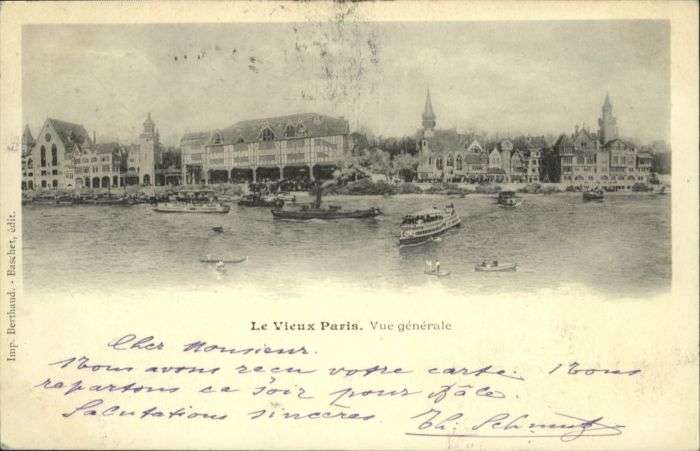 Imp. Berthaud. - Baschet, édit.
Le Vieux Paris. Vue générale
Cher Monsieur.
Nous avons reçu votre carte. Nous
repartons ce soir pour Bâle.
Salutations sincères. Th. Schmutz